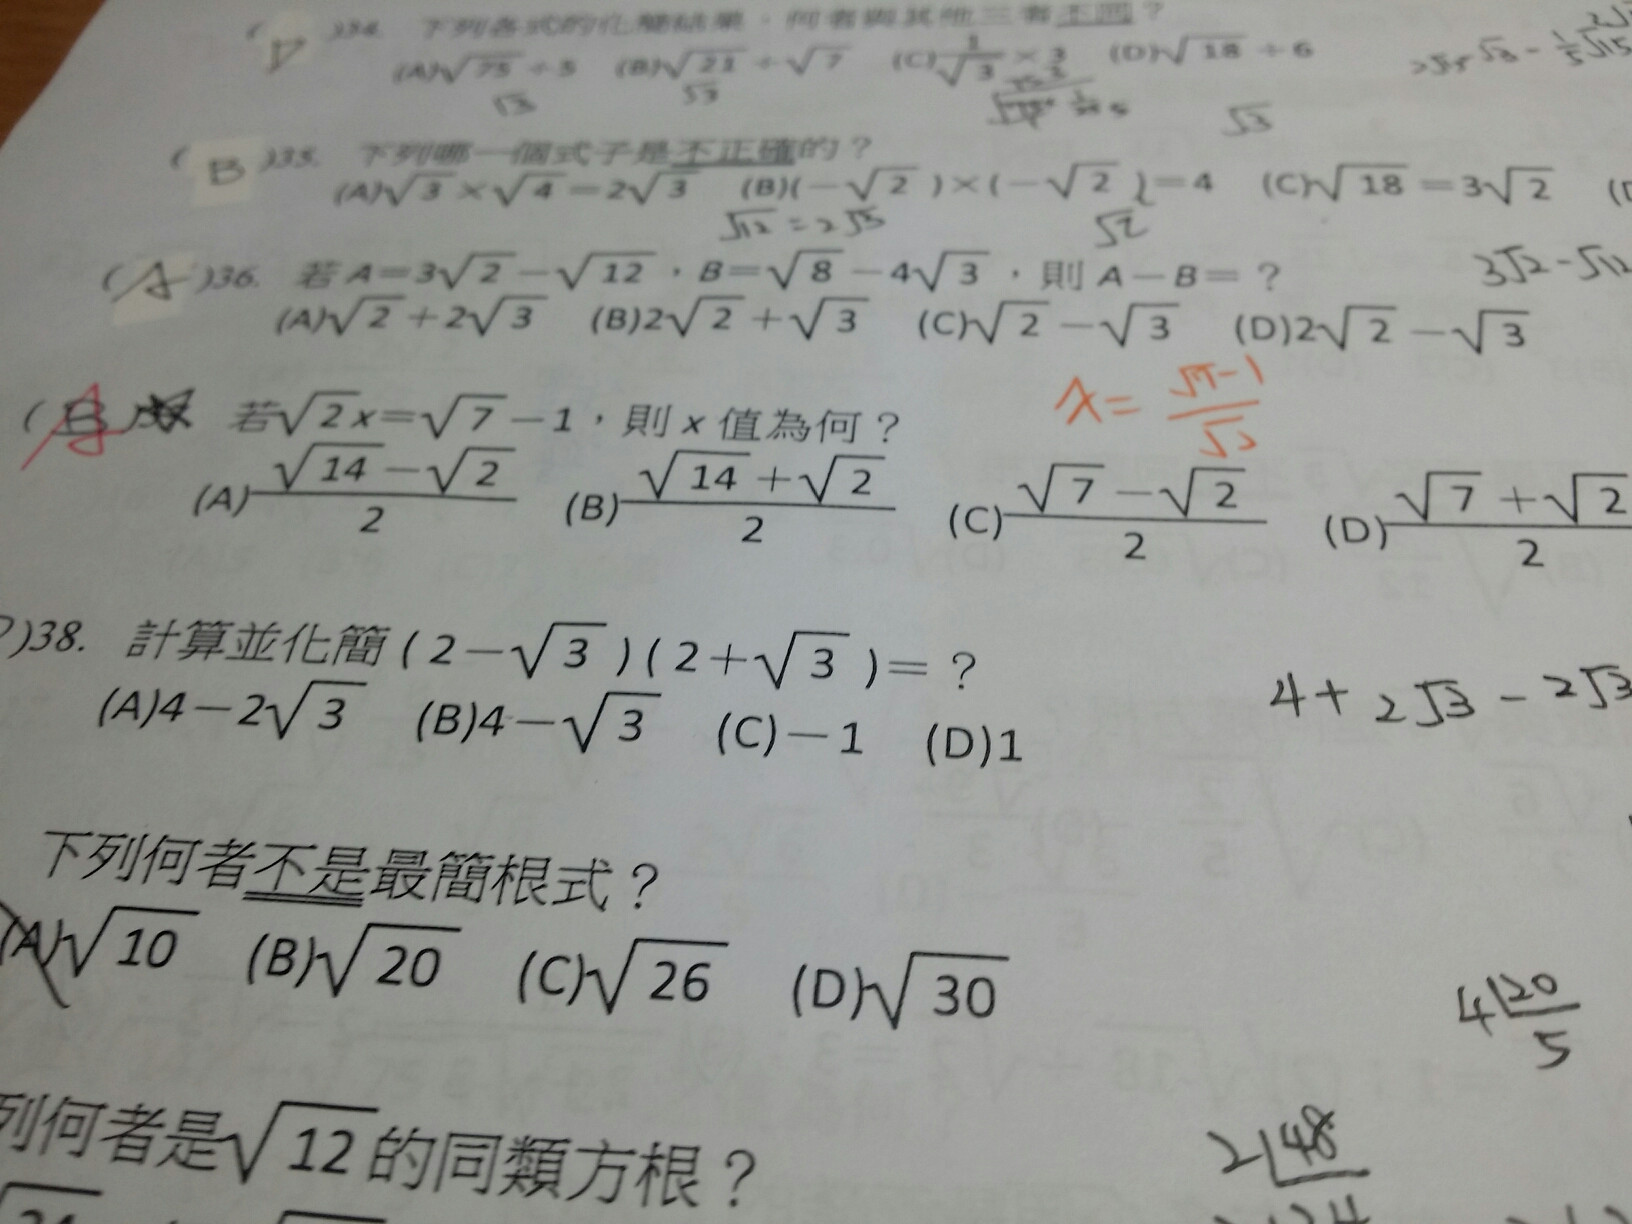 ( D )34. 下列各式的化簡結果，何者與其他三者不同？
(A)√75÷5 (B)√21÷√7 (C)1/√3×3 (D)√18÷6
√3 √3 √3
( B )35. 下列哪一個式子是不正確的？
(A)√3×√4=2√3 (B)(-√2)×(-√2)=4 (C)√18=3√2
√12=2√3 √2
( A )36. 若A=3√2-√12，B=√8-4√3，則A-B=？ 3√2-√12
(A)√2+2√3 (B)2√2+√3 (C)√2-√3 (D)2√2-√3
( A 若√2x=√7-1，則x值為何？ x=(√7-1)/√2
(A)(√14-√2)/2 (B)(√14+√2)/2 (C)(√7-√2)/2 (D)(√7+√2)/2
)38. 計算並化簡(2-√3)(2+√3)=？
(A)4-2√3 (B)4-√3 (C)-1 (D)1 4+2√3-2√3
下列何者不是最簡根式？
(A)√10 (B)√20 (C)√26 (D)√30
4 20
5
列何者是√12的同類方根？
2 48